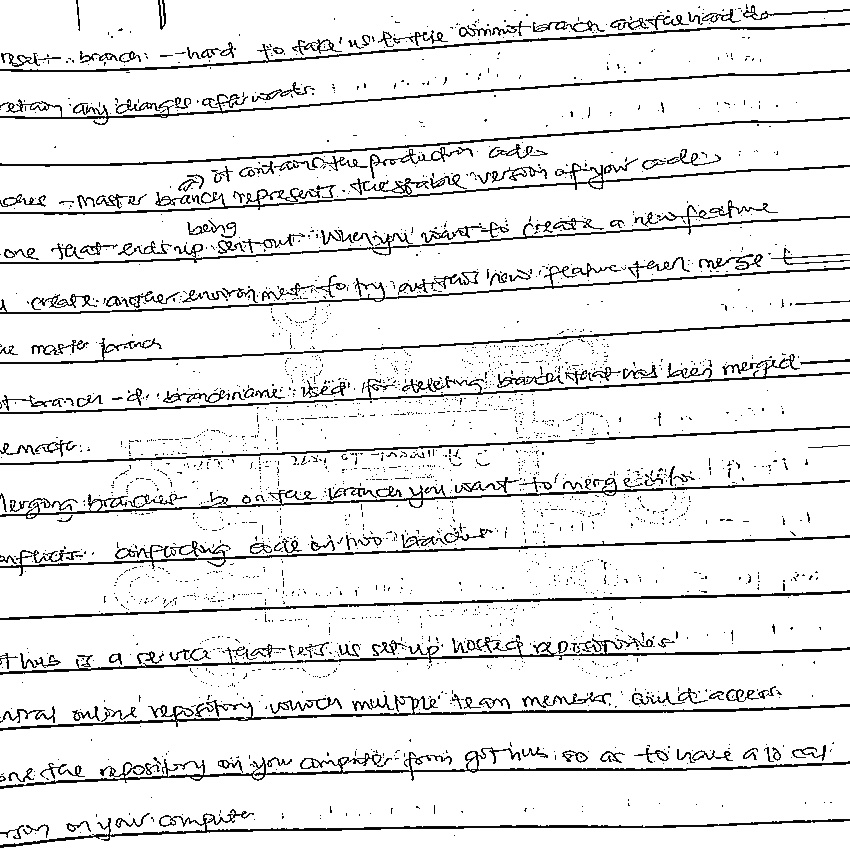 reset branch --hard to take us to the commit branch and the hard do
retain any changes afterwards.
it contains the production code
master branch represents the stable version of your code
being
one that ends up sent out. When you want to create a new feature
create another environment to try out this new feature then merge t
he master branch
branch -d branchname used for deleting branch that has been merged
e master.
Merging branches be on the branch you want to merge into
onflicts conflicting code on two branches
thub is a service that lets us set up hosted repositories
ntral online repository which multiple team members could access
one the repository on your computer from github so as to have a local
rson on your computer